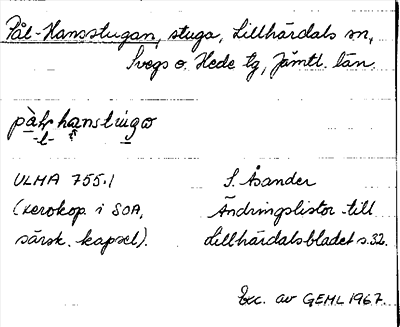 Pål-Hansstugan, stuga, Lillhärdals sn,
Svegs o. Hede tg, Jämtl. län.
-l-
ULMA 755:1 S. Åsander
(xerokop. i SOA, Ändringslistor till
särsk. kapsel). Lillhärdalsbladet s.32.
Exc. av GEHL 1967.